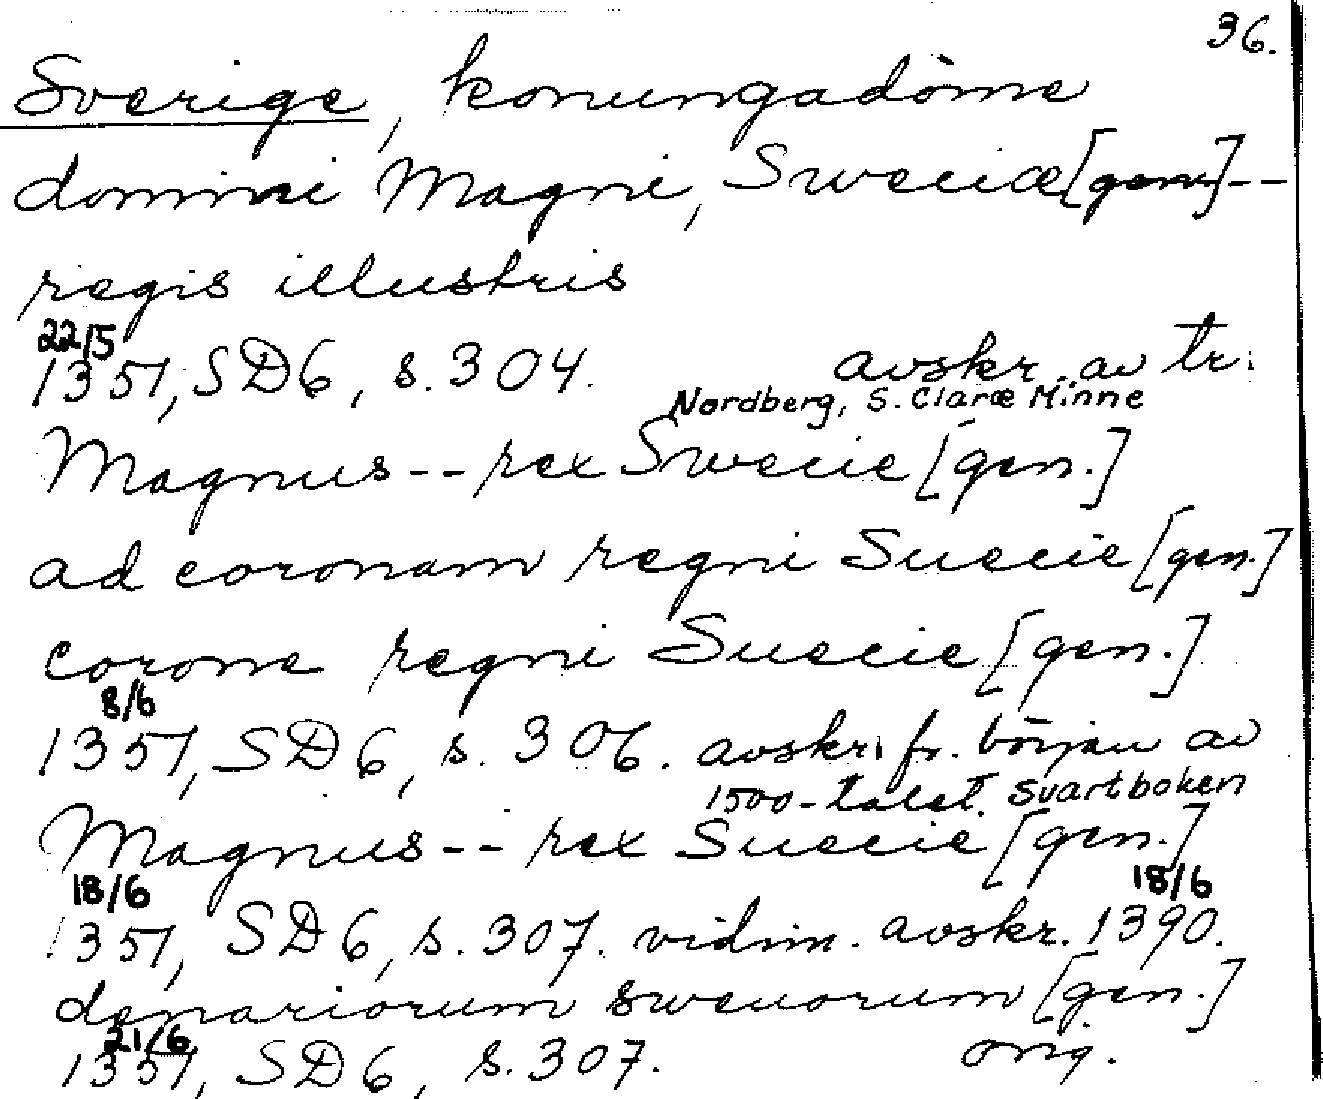 36.
Sverige, konungadöme
domini Magni, Sweciæ [gen.]--
regis illustris
22/5
1351, SD6, s. 304. avskr. av tr.
Nordberg, S. Claræ Minne
Magnus -- rex Swecie [gen.]
ad coronam regni Suecie [gen.]
corone regni Suecie [gen.]
8/6
1351, SD6, s. 306. avskr. fr. början av
1500-talet. Svartboken
Magnus -- rex Suecie [gen.]
18/6 18/6
1351, SD6, s. 307. vidim. avskr. 1390.
denariorum sweuorum [gen.]
21/6
1351, SD6, s. 307. orig.